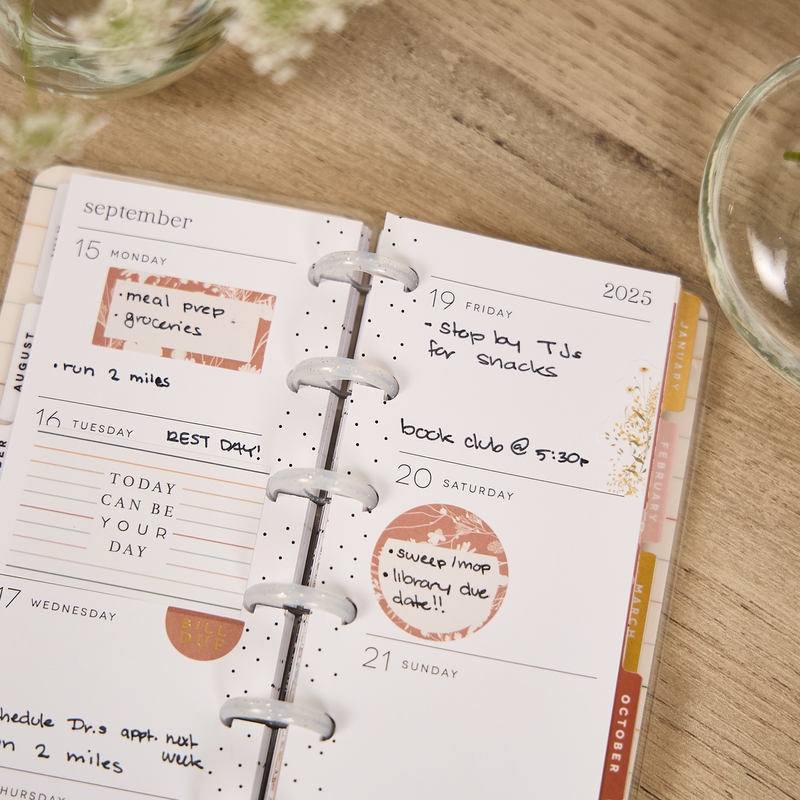 september
15 MONDAY
·meal prep
·groceries
·run 2 miles
16 TUESDAY REST DAY!
TODAY
CAN BE
YOUR
DAY
17 WEDNESDAY
BILL
DUE
hedule Dr.s appt. next
week.
n 2 miles
HURSDAY
2025
19 FRIDAY
·stop by TJs
for snacks
book club @ 5:30p
20 SATURDAY
·sweep/mop
·library due
date!!
21 SUNDAY
AUGUST
JANUARY
FEBRUARY
MARCH
OCTOBER